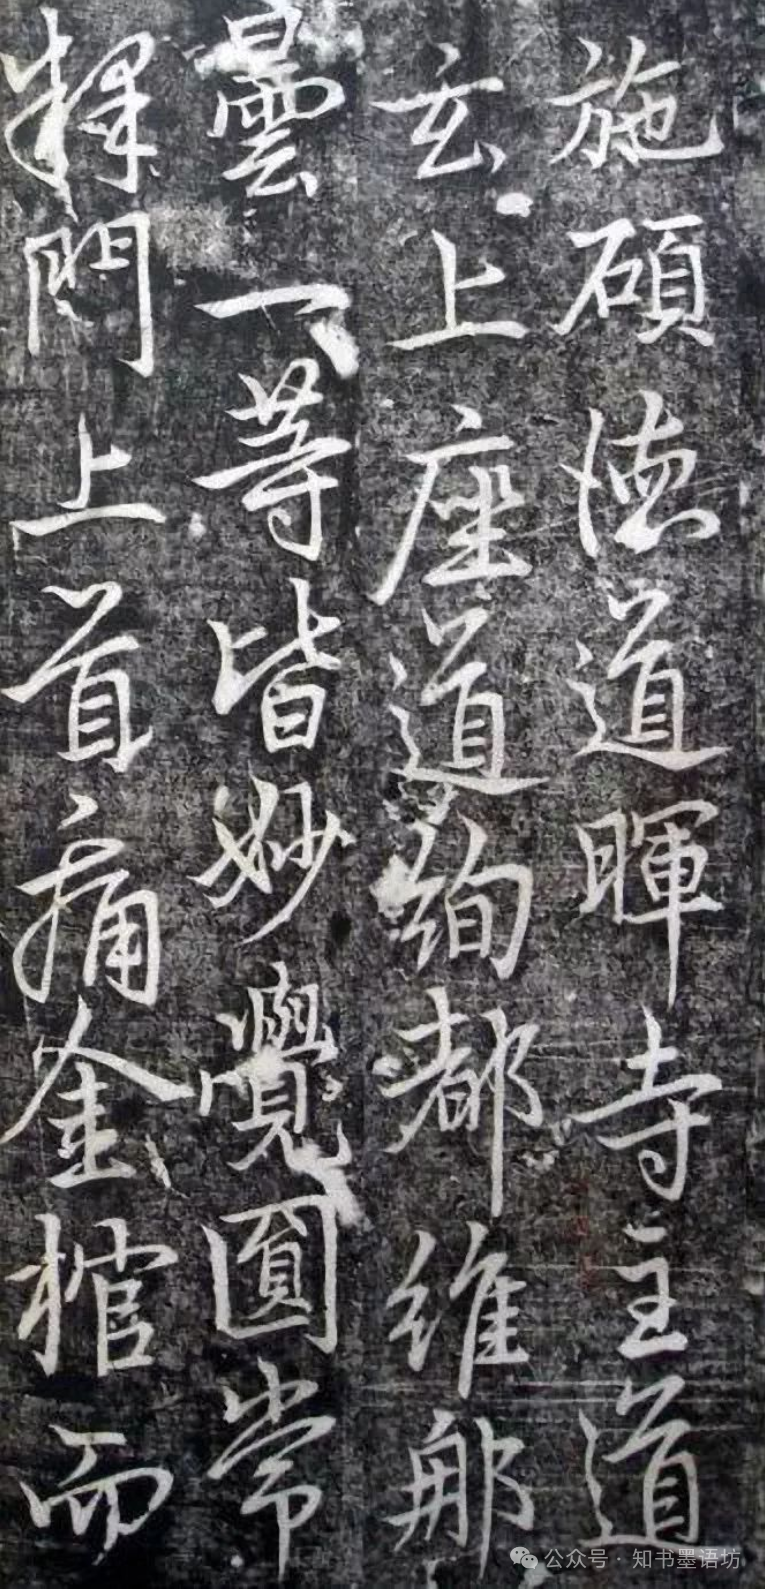 施碩德道暉寺主道
玄上座道絢都維那
曇一等皆妙覺圓常
釋門上首痛金棺而
公众号 · 知书墨语坊